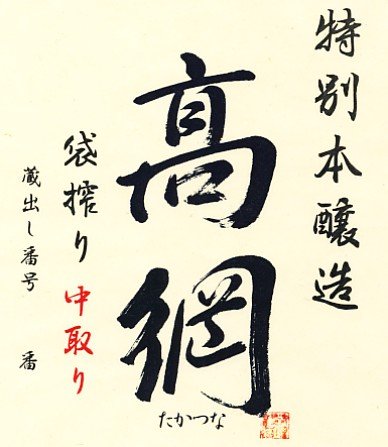 特別本醸造
高綱
たかつな
袋搾り中取り
蔵出し番号　番